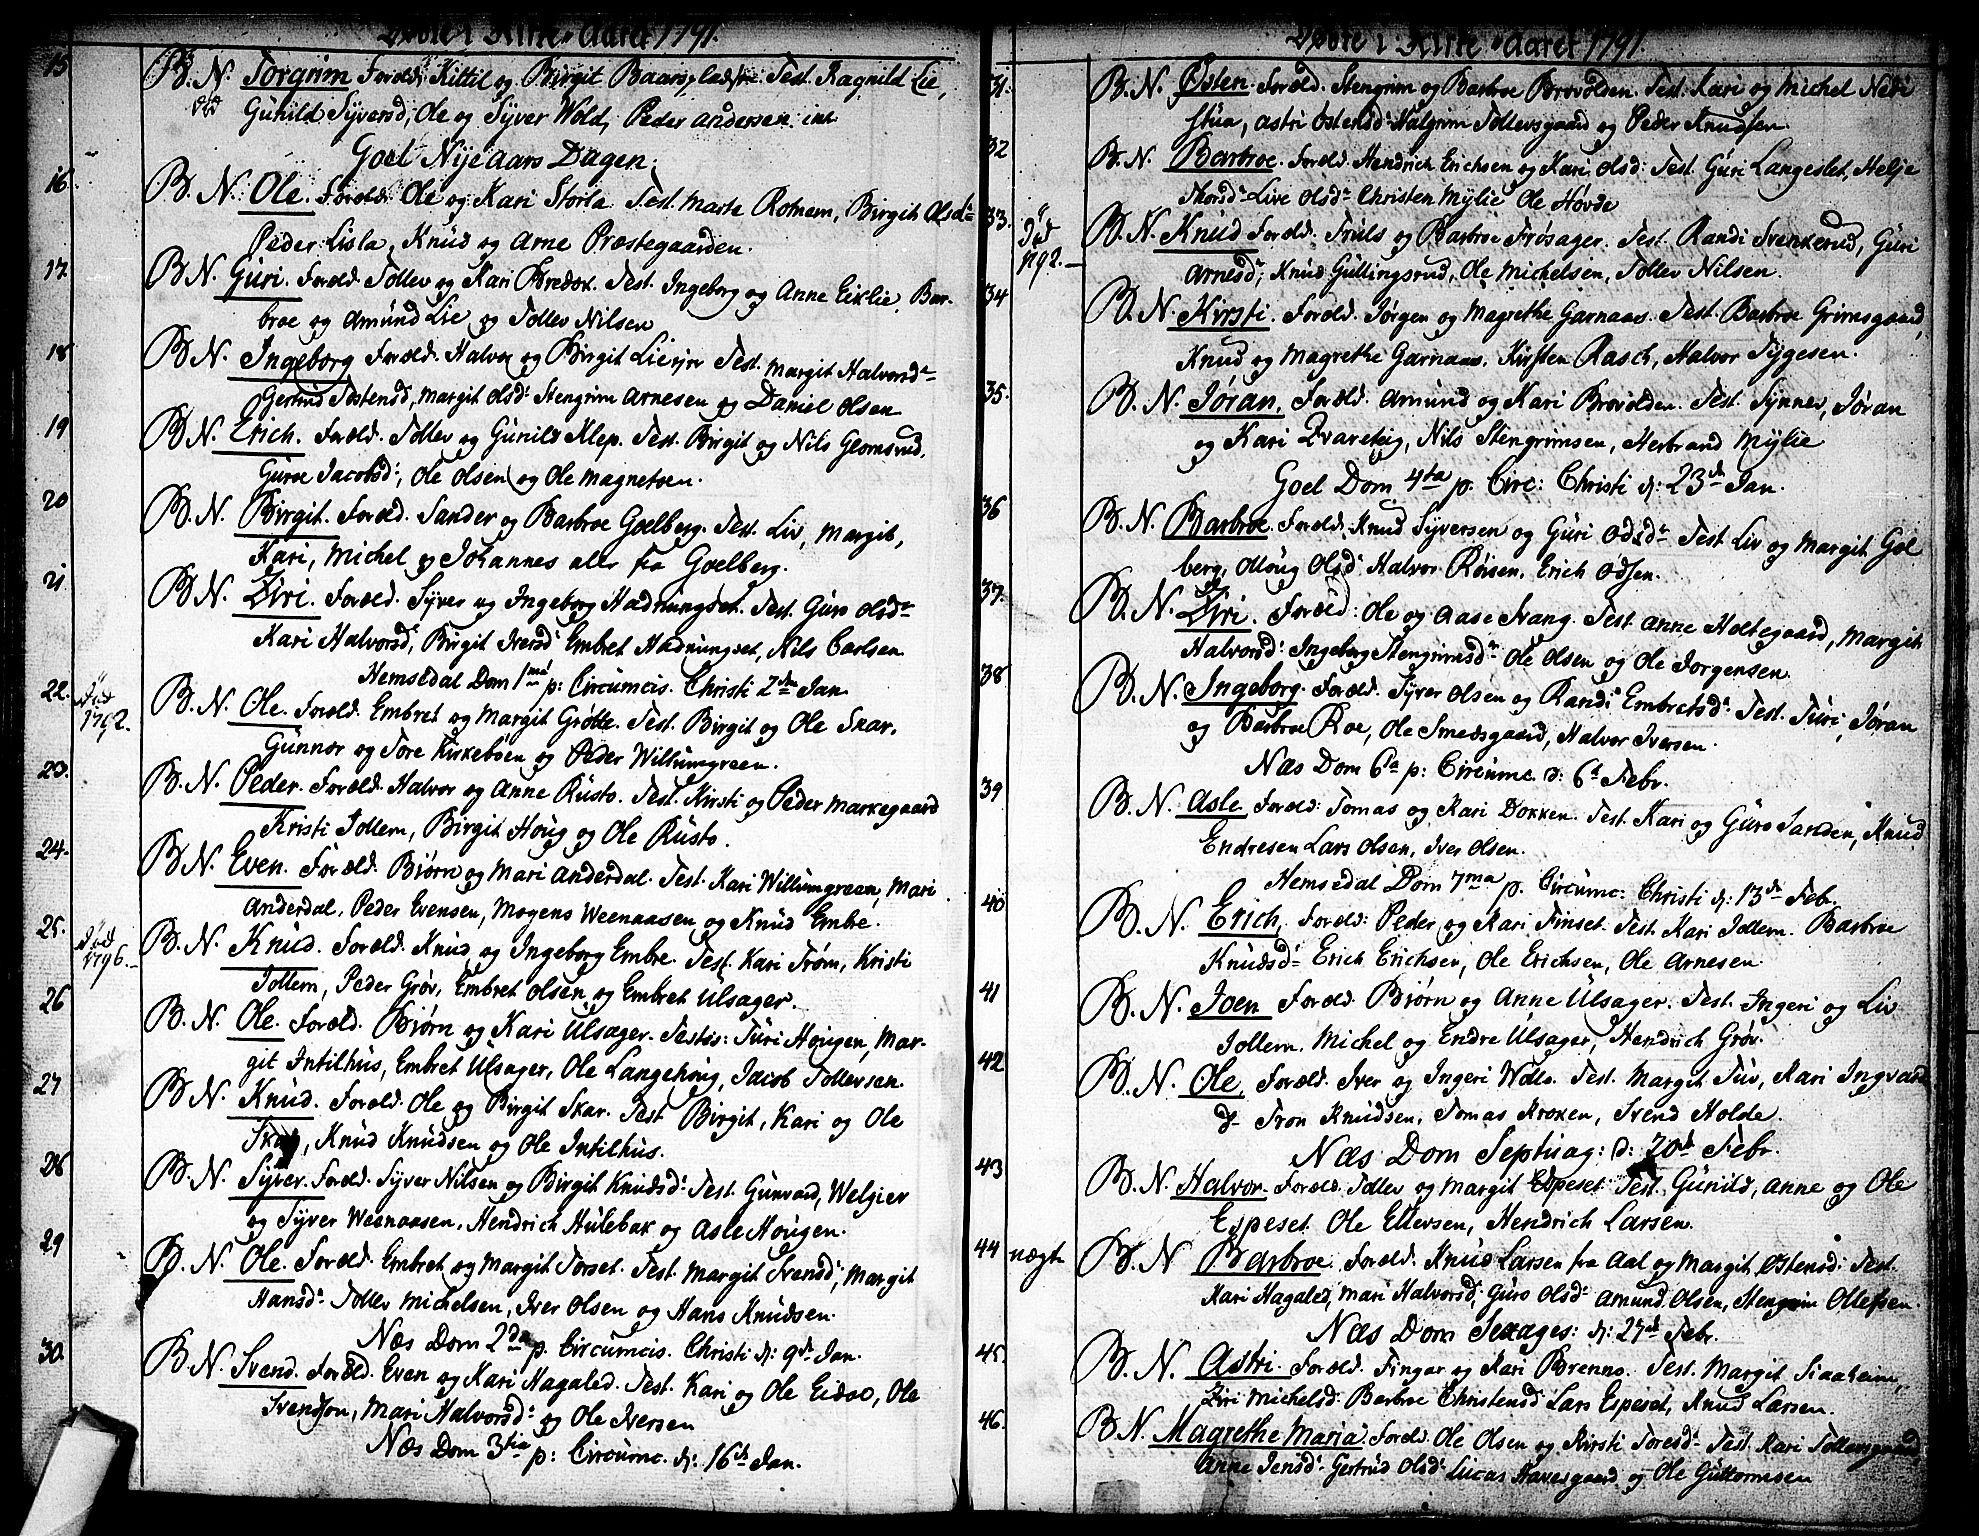 Døbte i Kirke-Aaret 1791.
15 B. N. Torgrim Foræld: Kittil og Birgit Baarspladsen Test. Ragnild Lie,
død Gunild Syversd, Ole og Syver Wold, Peder Andersen
Goel Nyeaars Dagen.
16. B. N. Ole. Foræld: Ole og Kari Storla Test. Marte Rotnem, Birgit Olsd:
Peder Lisla, Knud og Arne Præstegaarden.
17. B N. Guri. Foræld. Tollev og Kari Bredok. Test. Ingeborg og Anne Eiklie, Bar-
broe og Amund Lie og Tollev Nilsen
18. B N. Ingeborg Foræld. Halvor og Birgit Test. Margit Halvorsd:
Gertrud Tostensd, Margit Olsd: Stengrim Arnesen og Daniel Olsen
19 B N. Erich. Foræld. Tollev og Gunild Klep. Test. Birgit og Nils Glomsrud,
Guroe Jacobsd:, Ole Olsen og Ole Magnetsen.
20 B. N. Birgit. Foræld. Sander og Barbroe Goelberg. Test. Liv, Margit,
Kari, Michel og Johannes alle fra Goelberg.
21 B N. Ziri. Foræld. Syver og Ingeborg Hadnungset. Test. Guro Olsd:
Kari Halvorsd, Birgit Iversd: Embret Hadnungset, Nils Carlsen
Hemsedal Dom 1ma p: Circumcis. Christi 2den Jan
22. død 1792. B. N. Ole. Foræld. Embret og Margit Grøtte. Test. Birgit og Ole Skar,
Gunnor og Tore Kirkebøen og Peder Willumgreen.
23. B. N. Peder. Foræld. Halvor og Anne Rusto. Test. Kirsti og Peder Markegaard
Kristi Tollern, Birgit Houg og Ole Rusto.
24. B N. Even. Foræld. Biørn og Mari Anderdal. Test. Kari Willumgreen, Mari
Anderdal, Peder Evensen, Mogens Weenaasen og Knud Embre.
25. død 1796. B. N. Knud. Foræld. Knud og Ingeborg Embre. Test. Kari Trøm, Kristi
Tollern, Peder Grøv, Embret Olsen og Embret Ulsager.
26 B. N. Ole. Foræld. Biørn og Kari Ulsager. Testes: Turi Hougen, Mar-
git Intilhus, Embret Ulsager, Ole Langehoug, Jacob Tollevsen.
27 B N. Knud. Foræld. Ole og Birgit Skar. Test Birgit, Kari og Ole
Skar, Knud Knudsen og Ole Intilhus.
28 B N. Syver. Foræld. Syver Nilsen og Birgit Knudsd: Test. Gunvard, Welgier
og Syver Weenaasen, Hendrich Hulebak og Asle Hougen.
29 B. N. Ole. Foræld. Embret og Margit Torset. Test. Margit Svensd, Margit
Hansd: Tollev Michelsen, Iver Olsen og Hans Knudsen.
Næs Dom 2da p. Circumcis. Christi d: 9de Jan.
30. B N. Svend. Foræld. Even og Kari Hagaled. Test. Kari og Ole Eidsoe, Ole
Svendsen, Mari Halvorsd: og Ole Iversen
Næs Dom 3tia p: Circumc. d: 16de Jan.
Døbte i Kirke-Aaret 1791.
31. B. N. Østen. Foræld. Stengrim og Barbroe Brovolden. Test. Kari og Michel Nedi
stua, Astri Ostensd: Halgrim Tollevsgaard og Peder Knudsen.
32 B. N. Barbroe. Foræld. Hendrich Erichsen og Kari Olsd: Test. Guri Langeslet, Helje
Thorsd: Live Olsd: Christen Mylie Ole Høvde
33. død 1792. B. N. Knud Foræld. Truls og Barbroe Frøsager. Test. Randi Svenkerud, Guri
Arnesd:, Knud Gullingsrud, Ole Michelsen, Tollev Nilsen.
34 B. N. Kirsti. Foræld. Jørgen og Magrethe Garnaas. Test. Barbroe Grimsgaard,
Knud og Magrethe Garnaas. Kirsten Rasch, Halvor Tygesen.
35. B. N. Jøran. Foræld. Amund og Kari Brovolden. Test. Synnev, Jøran
og Kari Qvaretig, Nils Stengrimsen, Herbrand Mylie
Goel Dom 4ta p. Circ: Christi d: 23de Jan.
36 B. N. Barbroe. Foræld. Knud Syversen og Guri Odsd: Test. Liv og Margit Gol
berg, Aloug Olsd: Halvor Røisen, Erich Odsen.
37. B. N. Ziri. Foræld: Ole og Aase Svang. Test. Anne Holtegaard, Margit
Halvorsd: Ingeborg Stengrimsd: Ole Olsen og Ole Jorgensen.
38 B. N. Ingeborg. Foræld. Syver Olsen og Randi Embretsd: Test. Turi, Jøran
og Barbroe Roe, Ole Smedsgaard, Halvor Iversen.
Næs Dom 6ta p: Circumc. d: 6te Febr.
39 B. N. Asle. Foræld: Tomas og Kari Dokken. Test. Kari og Guro Sanden, Knud
Endresen Lars Olsen, Iver Olsen.
Hemsedal Dom 7ma p. Circumc: Christi d: 13de Feb.
40 B. N. Erich. Foræld: Peder og Kari Finset. Test. Kari Tollern. Barbroe
Knudsd: Erich Erichsen, Ole Erichsen, Ole Arnesen.
41 B. N. Joen Foræld. Biørn og Anne Ulsager. Test. Ingeri og Liv
Tollern. Michel og Endre Ulsager, Hendrich Grøv.
42 B. N. Ole. Foræld. Iver og Ingeri Wøllo. Test. Margit Tuv, Kari Ingvars
d- Tron Knudsen, Tomas Kroken, Svend Holde.
Næs Dom Septuag: d: 20de Febr.
43 B. N. Halvor. Foræld. Tollev og Margit Espeset Test. Gunild, Anne og Ole
Espeset Ole Ellevsen, Hendrich Larsen.
44 uægte B. N Barbroe. Foræld. Knud Larsen fra Aal og Margit Østensd: Test.
Kari Hagaled, Mari Halvorsd, Guro Olsd: Amund Olsen, Stengrim Ollefsen.
Næs Dom Sexages: d: 27de Febr.
45. B. N. Astri. Foræld. Fingar og Kari Brenno. Test. Margit Siaaheim,
Ziri Michelsd: Barbroe Christensd Lars Espeset, Knud Larsen.
46. B N. Magrethe Maria. Foræld. Ole Olsen og Kirsti Toresd: Test. Kari Tollevsgaard
Anne Jensd: Gertrud Olsd: Lucas Haresgaard og Ole Guttormsen